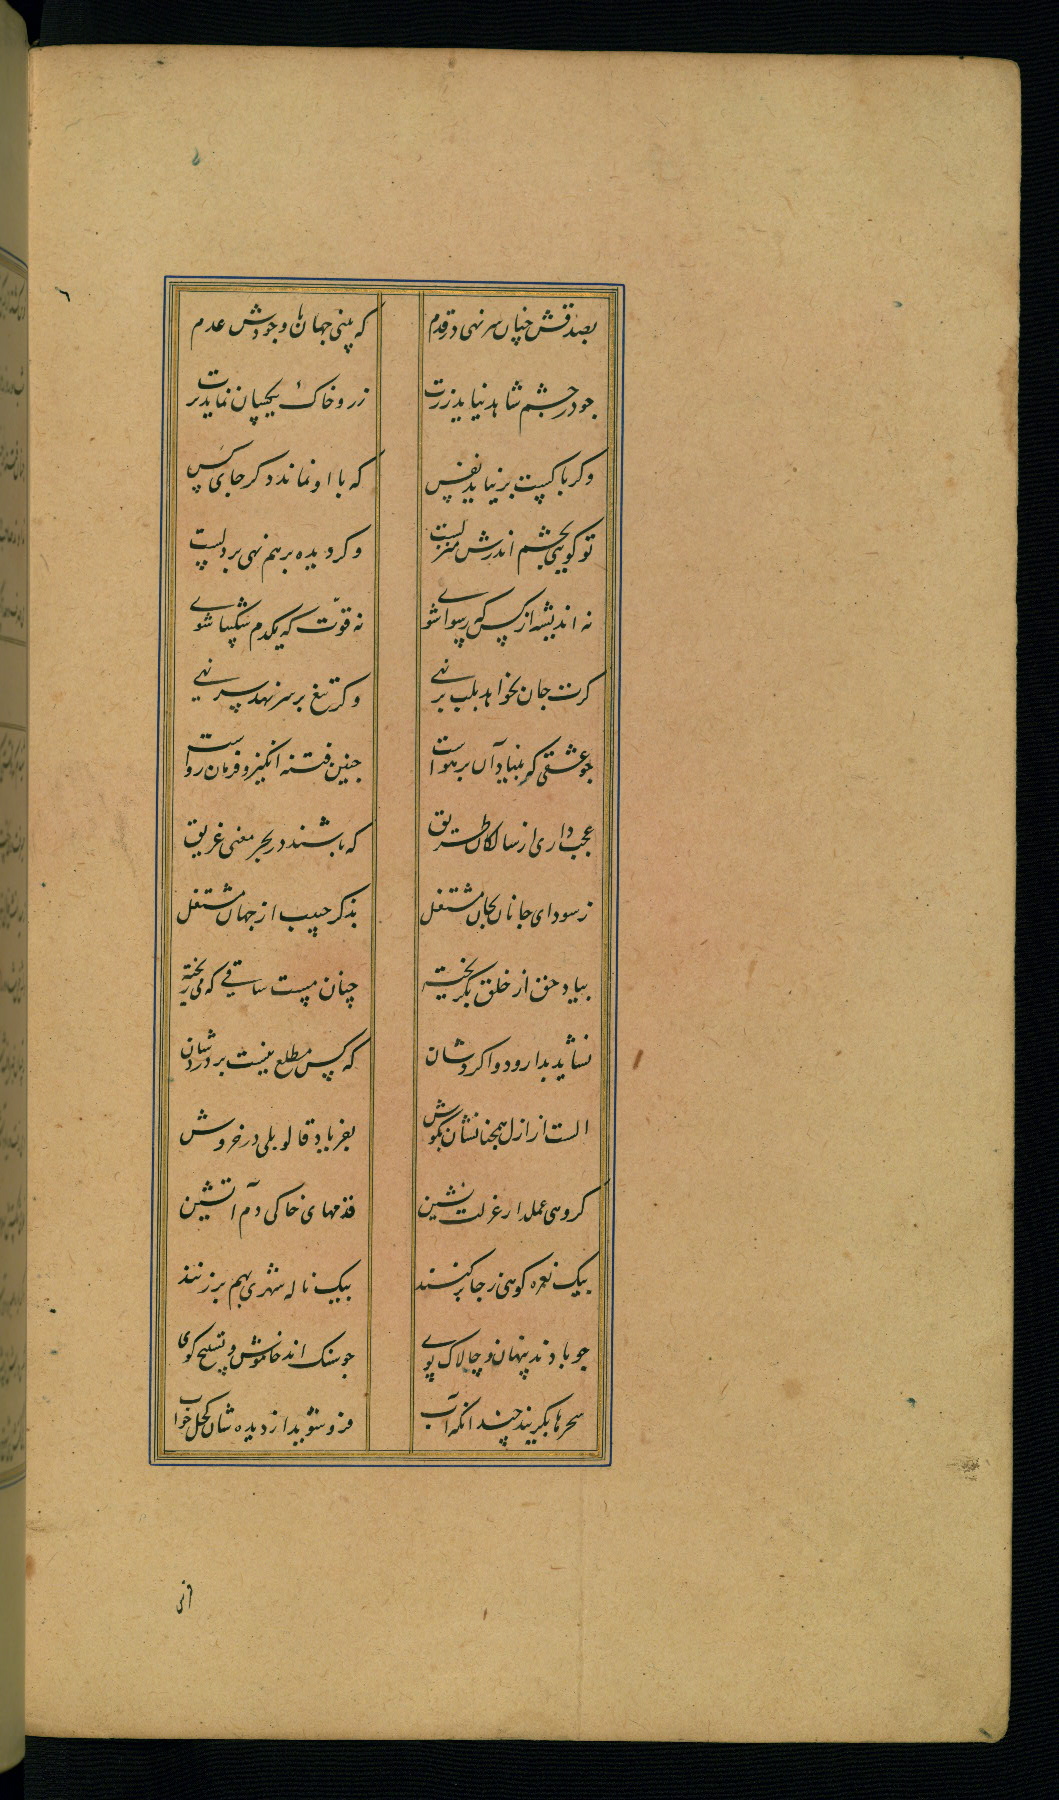 بصدقش چنان سر نهی در قدم که بینی جهان با وجودش عدم
جو در چشم شاهد نیاید زرت زر و خاک یکسان نماید برت
وکر با کست بر نیاید نفس که با او نماند دکر جای کس
تو کویی بچشم اندرش منزلست وکر دیده بر هم نهی بر دلست
نه اندیشه از کس که رسوا شوی نه قوّت که یکدم شکیبا شوی
کرت جان بخواهد بلب بر نهی وکر تیغ بر سر نهد سر نهی
جو عشقی که بنیاد آن بر هواست جنین فتنه انکیز و فرمان رواست
عجب داری از سالکان طریق که باشند در بحر معنی غریق
ز سودای جانان بجان مشتغل بذکر حبیب از جهان مشتغل
بیاد حق از خلق بکریخته چنان مست ساقی که می ریخته
نشاید بدارو دوا کردشان که کس مطلع نیست بر دردشان
الست از ازل همچنانشان بکوش بفریاد قالو بلی در خروش
کروهی عملدار عزلت نشین قدمهای خاکی دم آتشین
بیک نعره کوهی ز جا بر کنند بیک ناله شهری بهم بر زنند
چو بادند پنهان و چالاک پوی جو سنک اند خاموش و تسبیح کوی
سحرها بکریند چندانکه آب فرو شوید از دیده شان کحل خواب